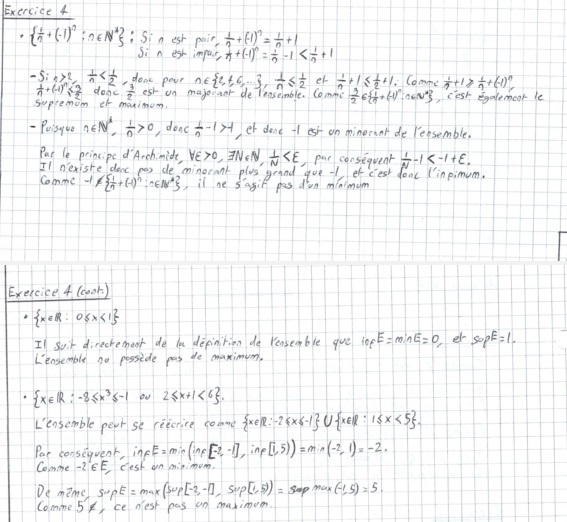 Exercice 4
• {1/n + (-1)^n : n∈ℕ*} : Si n est pair, 1/n + (-1)^n = 1/n + 1
Si n est impair, 1/n + (-1)^n = 1/n - 1 < 1/n + 1
- Si n>2, 1/n < 1/2, donc pour n∈{2,4,6,...}, 1/n ≤ 1/2 et 1/n + 1 ≤ 1/2 + 1. Comme 1/n + 1 ≥ 1/n + (-1)^n,
1/n + (-1)^n ≤ 3/2 donc 3/2 est un majorant de l'ensemble. Comme 3/2 ∈ {1/n + (-1)^n : n∈ℕ*}, c'est également le
supremum et maximum.
- Puisque n∈ℕ*, 1/n > 0, donc 1/n - 1 > -1, et donc -1 est un minorant de l'ensemble.
Par le principe d'Archimède, ∀ε>0, ∃N∈ℕ, 1/N < ε, par conséquent 1/N - 1 < -1 + ε.
Il n'existe donc pas de minorant plus grand que -1, et c'est donc l'infimum.
Comme -1 ∉ {1/n + (-1)^n : n∈ℕ*}, il ne s'agit pas d'un minimum
Exercice 4 (cont.)
• {x∈ℝ : 0 ≤ x < 1}
Il suit directement de la définition de l'ensemble que inf E = min E = 0, et sup E = 1.
L'ensemble ne possède pas de maximum.
• {x∈ℝ : -8 ≤ x³ ≤ -1 ou 2 ≤ x+1 < 6}.
L'ensemble peut se réécrire comme {x∈ℝ : -2 ≤ x ≤ -1} ∪ {x∈ℝ : 1 ≤ x < 5}.
Par conséquent, inf E = min(inf[-2,-1], inf[1,5)) = min(-2, 1) = -2.
Comme -2 ∈ E, c'est un minimum.
De même, sup E = max(sup[-2,-1], sup[1,5)) = max(-1,5) = 5.
Comme 5 ∉, ce n'est pas un maximum.